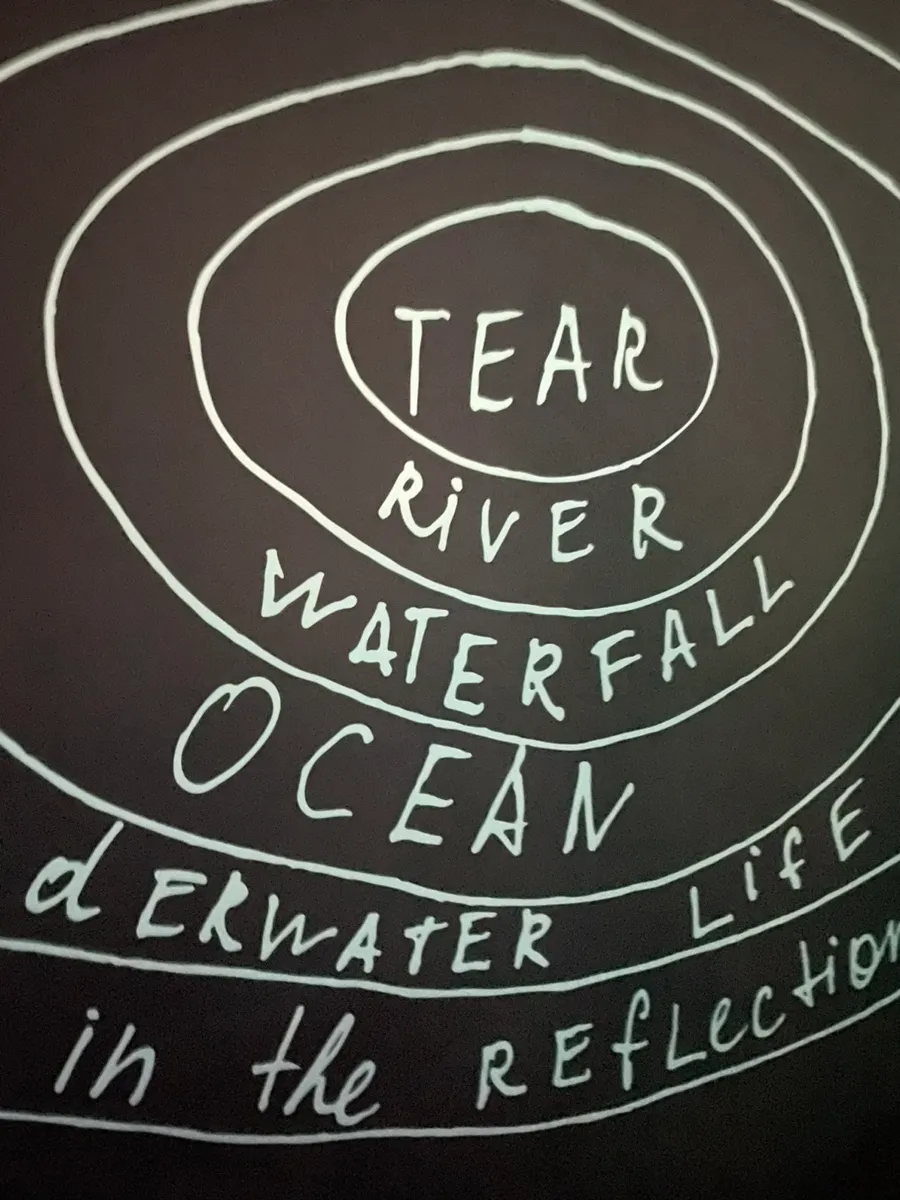 TEAR
RiVER
WATERFALL
OCEAN
dERWATER LifE
in the REfLection